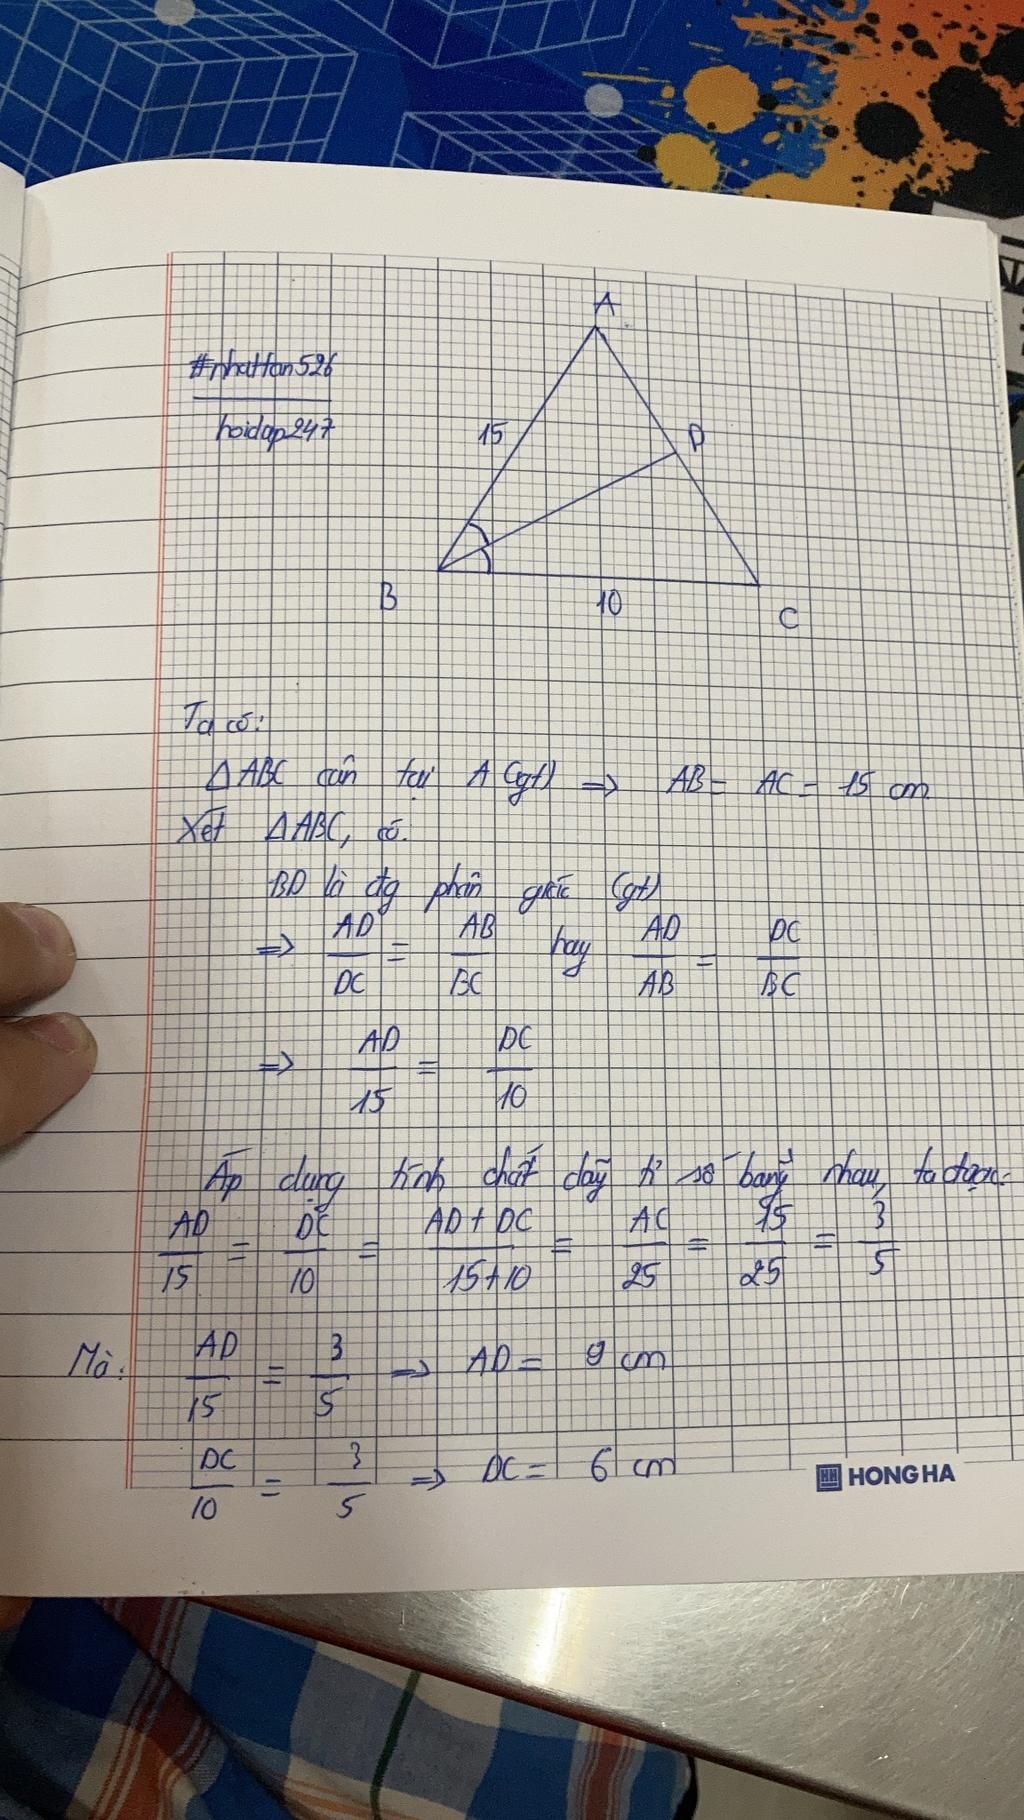 A
#nhattan526
hoidap247
15
D
B
10
C
Ta có:
ΔABC cân tại A (gt) => AB = AC = 15 cm
Xét ΔABC, có:
BD là đg phân giác (gt)
=> AD/DC = AB/BC hay AD/AB = DC/BC
=> AD/15 = DC/10
Áp dụng tính chất dãy tỉ số bằng nhau, ta được:
AD/15 = DC/10 = AD + DC/15+10 = AC/25 = 15/25 = 3/5
Mà: AD/15 = 3/5 => AD = 9 cm
DC/10 = 3/5 => DC = 6 cm
HONG HA